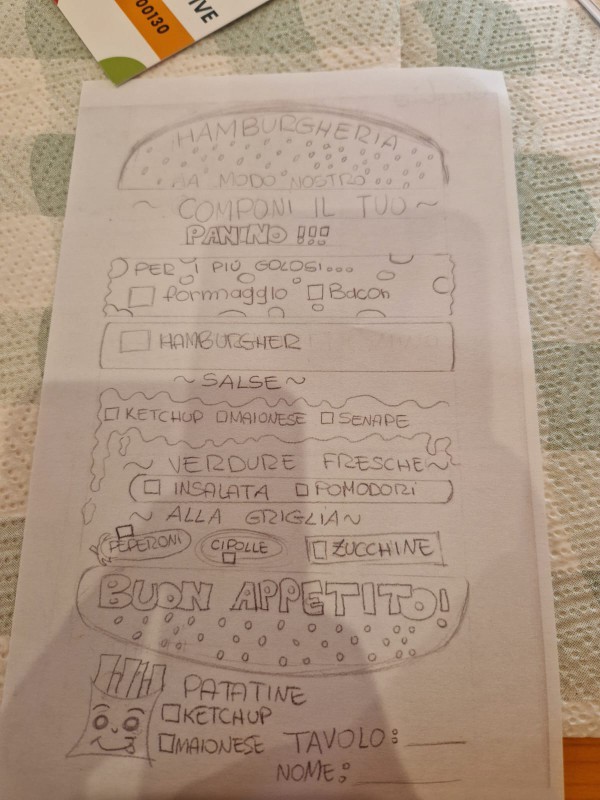 IVE
00130
HAMBURGHERIA
A MODO NOSTRO
~ COMPONI IL TUO ~
PANINO !!!
PER I PIÙ GOLOSI...
formaggio Bacon
HAMBURGHER
~ SALSE ~
KETCHUP MAIONESE SENAPE
~ VERDURE FRESCHE ~
INSALATA POMODORI
~ ALLA GRIGLIA ~
PEPERONI CIPOLLE ZUCCHINE
BUON APPETITO!
PATATINE
KETCHUP
MAIONESE TAVOLO: ____
NOME: ____